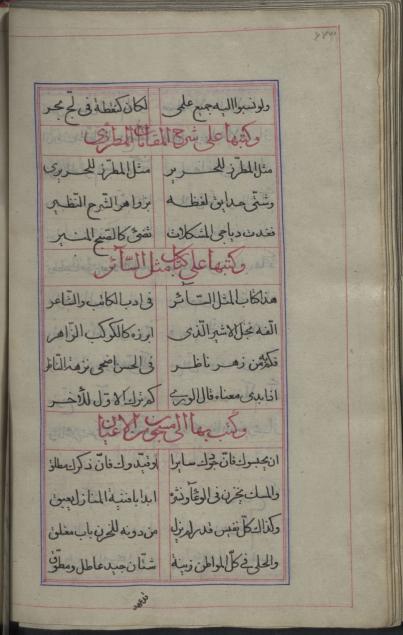 ولو نسبوا اليه جميع علمي لكان كنقطة في لج بحر
وكتبها على شرح المقامات للمطرزي
مثل المطرز للحرير مثل المطرزي للحريري
وشى حدايق لفظه بزواهر الشرح النظير
فغدت دياجي المشكلات تضئ كالصبح المنير
وكتبها على كتاب مثل السائر
هذا كتاب المثل السائر في ادب الكاتب والشاعر
الفه نجل الاثير الذي ابرزه كالكوكب الزاهر
فكم من زهر ناظر في الحسن اضحى نزهة الناظر
اذا بدى معناه قال الورى كم ترك الاول للآخر
وكتب بها الى بعض الاعيان
ان يحبسوك فان جودك سايرا او قيدوك فان ذكرك مطلق
والمسك يخزن في الوعآ ونشره ابدا بافنية المنازل يعبق
وكذاك كل نفيس قدر لم يزل من دونه للخزن باب مغلق
والحلي في كل المواطن زينة شتان جيد عاطل ومطوق